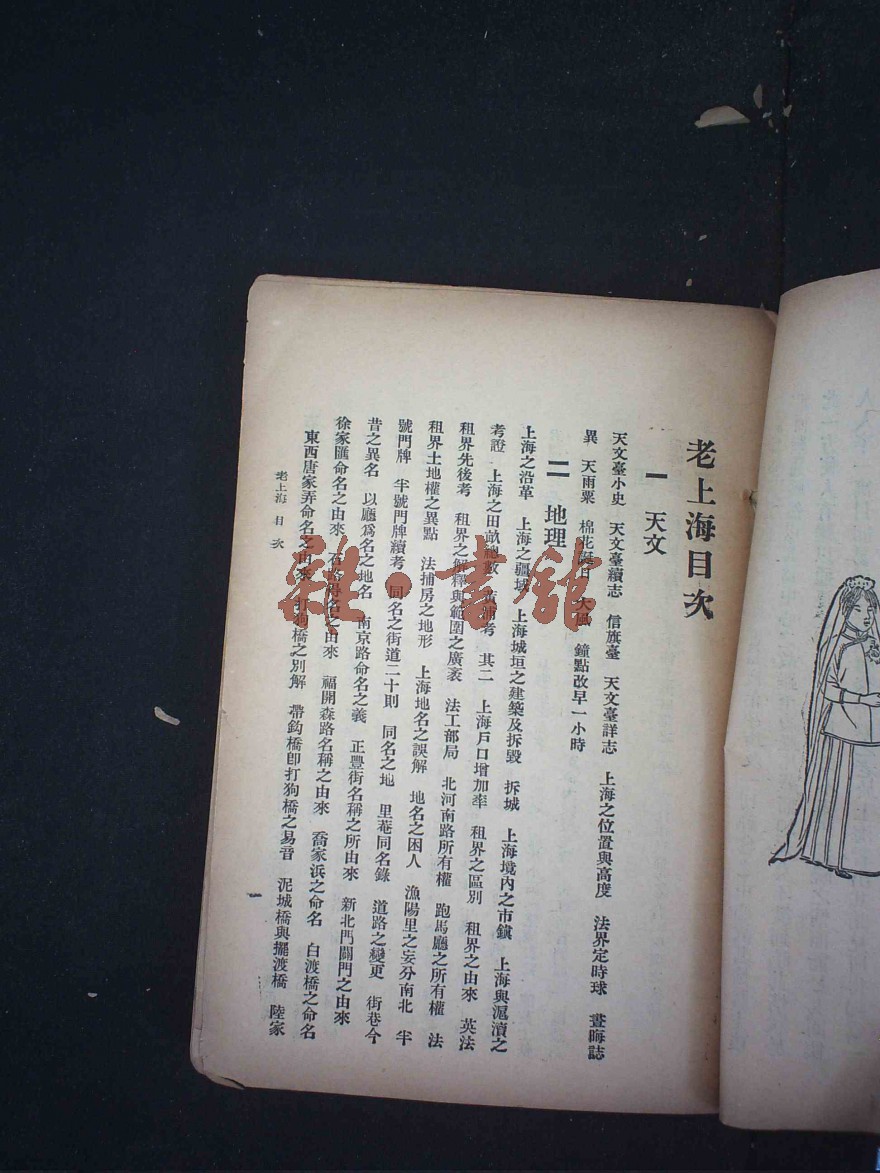 老上海目次
一 天文
天文臺小史 天文臺續志 信旗臺 天文臺詳志 上海之位置與高度 法界定時球 晝晦誌
異 天雨粟 棉花誕日 大風 鐘點改早一小時
二 地理
上海之沿革 上海之疆域 上海城垣之建築及拆毀 拆城 上海境內之市鎭 上海與滬瀆之
考證 上海之田畝總數 黃浦考 其二 上海戶口增加率 租界之區別 租界之由來 英法
租界先後考 租界之解釋與範圍之廣袤 法工部局 北河南路所有權 跑馬廳之所有權 法
租界土地權之異點 法捕房之地形 上海地名之誤解 地名之困人 漁陽里之妄分南北 半
號門牌 半號門牌續考 同名之街道二十則 同名之地 里菴同名錄 道路之變更 街巷今
昔之異名 以廳爲名之地名 南京路命名之義 正豐街名稱之所由來 新北門闢門之由來
徐家匯命名之由來 石路得名之由來 福開森路名稱之由來 喬家浜之命名 白渡橋之命名
東西唐家弄命名之由來 打狗橋之別解 帶鈎橋卽打狗橋之易音 泥城橋與擺渡橋 陸家
老上海 目 次
雜·書館